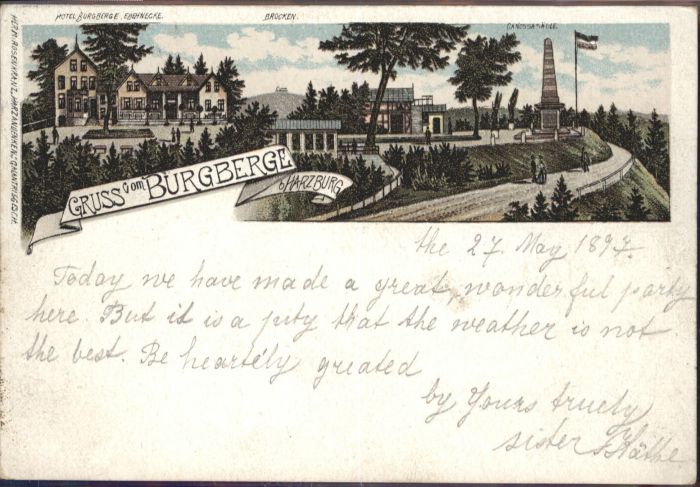 HOTEL BURGBERGE, F. BEHNECKE.
BROCKEN.
CANOSSA-SÄULE.
GRUSS vom BURGBERGE
b/HARZBURG
the 27. May 1897.
Today we have made a great, wonderful party
here. But it is a pity that the weather is not
the best. Be heartely greated
by Yours truely
sister Käthe